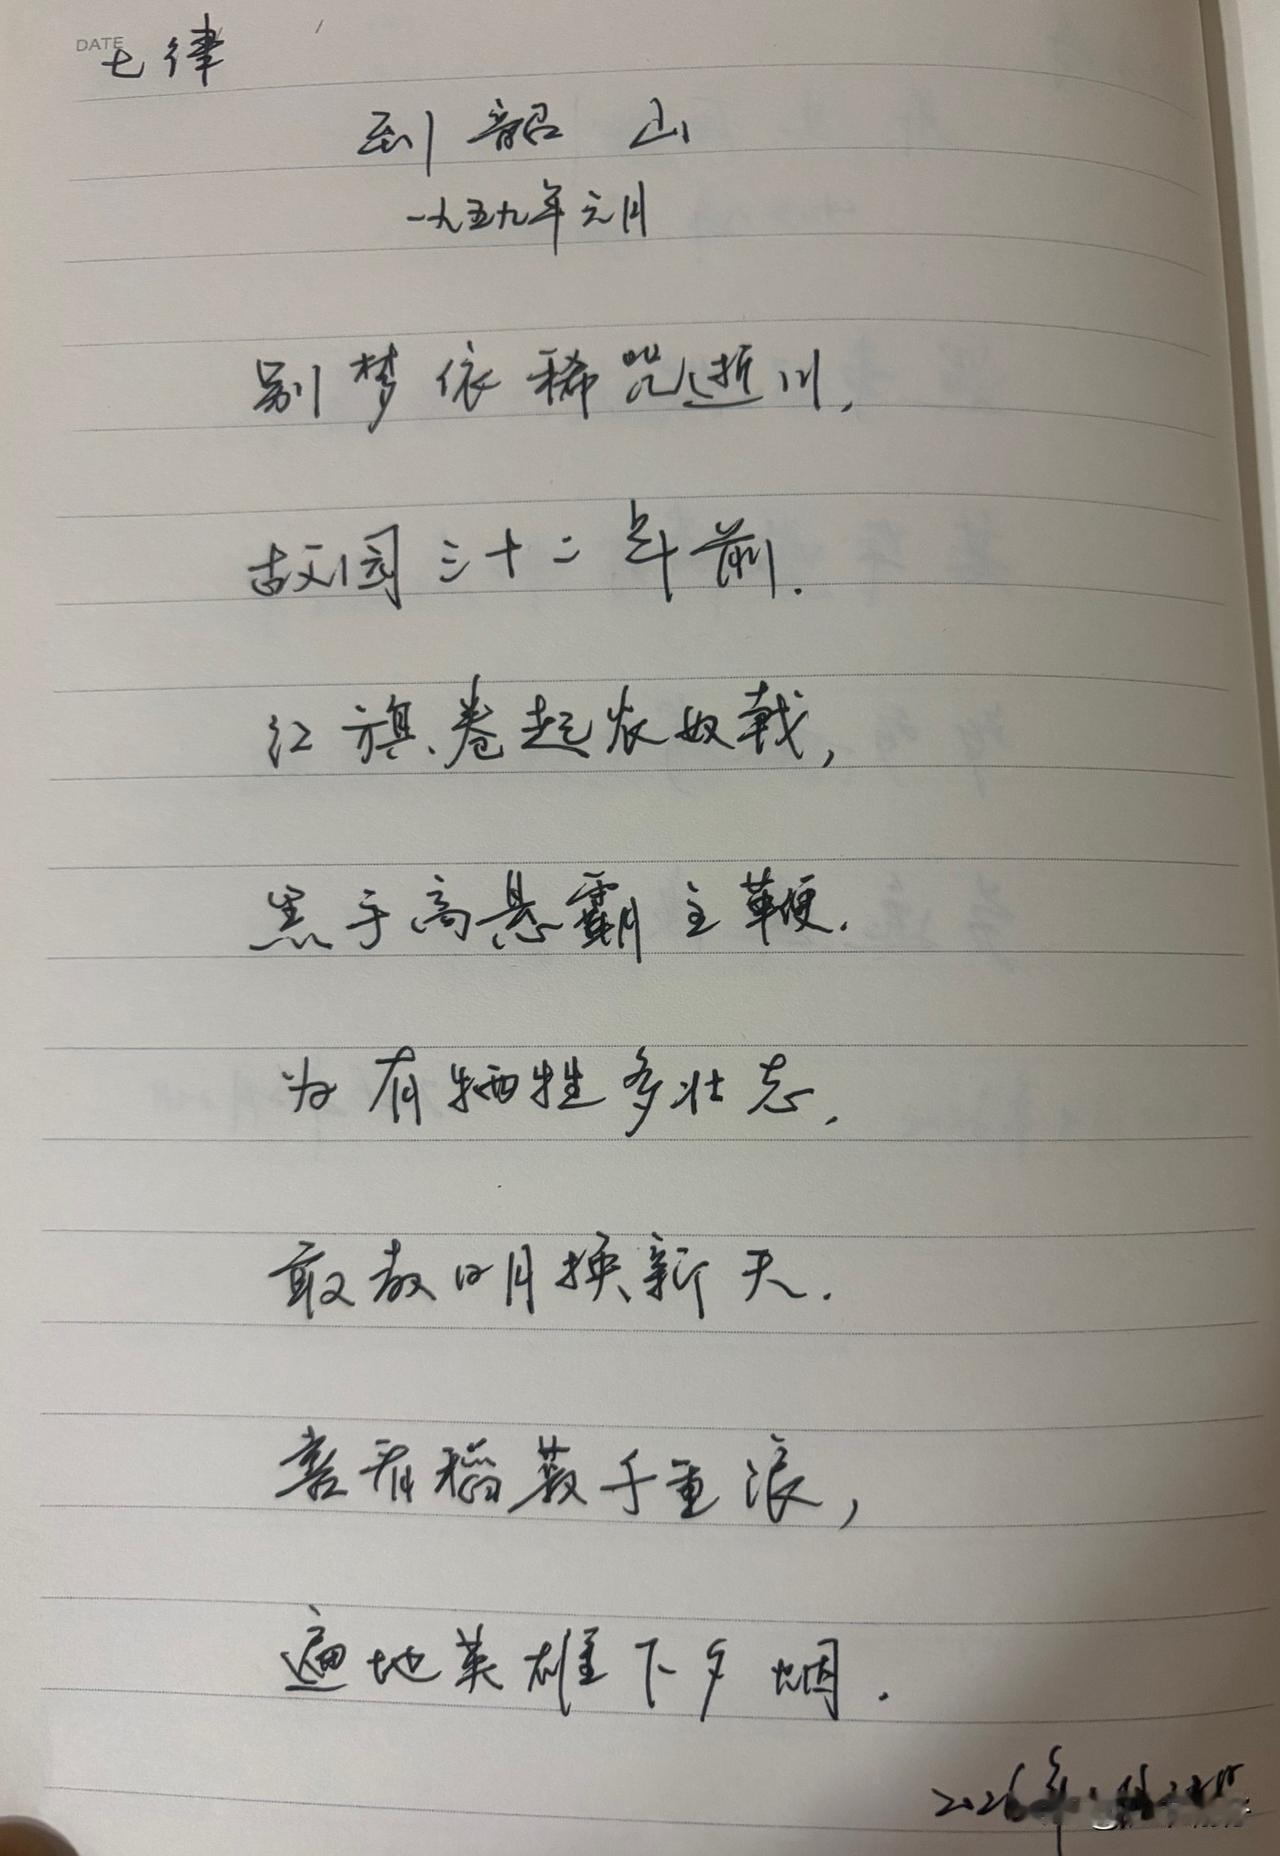 DATE
七律
到韶山
一九五九年元月
别梦依稀咒逝川,
故园三十二年前.
红旗卷起农奴戟,
黑手高悬霸主鞭.
为有牺牲多壮志,
敢教日月换新天.
喜看稻菽千重浪,
遍地英雄下夕烟.
2026年